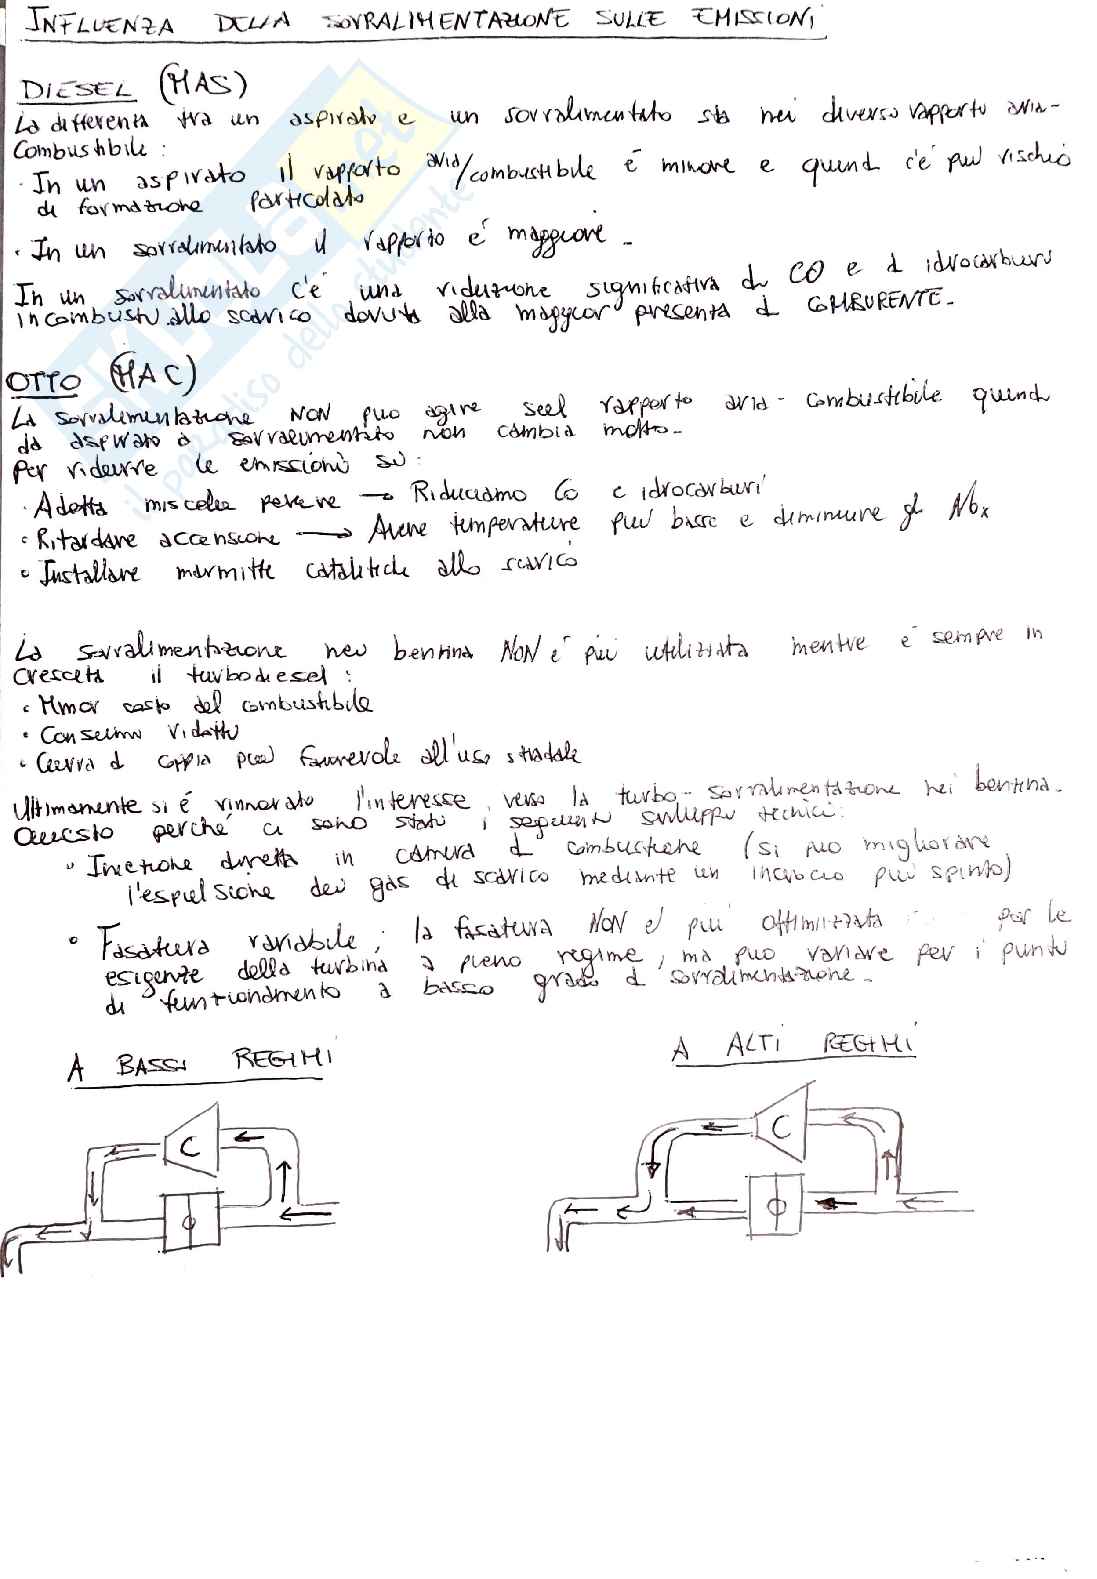 INFLUENZA DELLA SOVRALIMENTAZIONE SULLE EMISSIONI
DIESEL (MAS)
La differenza tra un aspirato e un sovralimentato sta nei diverso rapporto aria-
combustibile:
· In un aspirato il rapporto aria/combustibile è minore e quindi c'è più rischio
di formazione particolato
· In un sovralimentato il rapporto è maggiore.
In un sovralimentato c'è una riduzione significativa di CO e di idrocarburi
incombusti allo scarico dovuta alla maggior presenza di COMBURENTE.
OTTO (MAC)
La sovralimentazione NON può agire sul rapporto aria-combustibile quindi
da aspirato a sovralimentato non cambia molto.
Per ridurre le emissioni si:
· Adotta miscela povere → Riduciamo CO e idrocarburi
· Ritardare accensione → Avere temperature più basse e diminuire gli NOx
· Installare marmitte catalitiche allo scarico
La sovralimentazione nei benzina NON è più utilizzata mentre è sempre in
crescita il turbodiesel:
· Minor costo del combustibile
· Consumi ridotti
· Curva di coppia più favorevole all'uso stradale
Ultimamente si è rinnovato l'interesse verso la turbo-sovralimentazione nei benzina.
Questo perché ci sono stati i seguenti sviluppi tecnici:
· Iniezione diretta in camera di combustione (si può migliorare
l'espulsione dei gas di scarico mediante un incrocio più spinto)
· Fasatura variabile; la fasatura NON è più ottimizzata per le
esigenze della turbina a pieno regime, ma può variare per i punti
di funzionamento a basso grado di sovralimentazione.
A BASSI REGIMI
A ALTI REGIMI
C
C
φ
φ
il paradiso dello studente